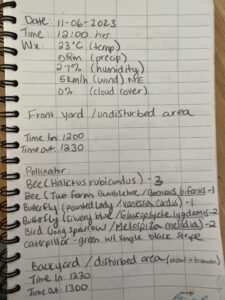 Date 11-06-2023
Time: 12:00 hrs
Wx: 23°C (temp)
0mm (precip)
27% (humidity)
5km/h (wind) NE
0% (cloud cover)
Front yard / undisturbed area
Time In: 1200
Time out: 1230
Pollinator
Bee (Halictus rubicundus) - 3
Bee (Two form Bumblebee / Bombus bifarius - 1
Butterfly (Painted Lady / Vanessa cardus) - 1
Butterfly (silvery blue / Glaucopsyche lygdamus - 2
Bird (song sparrow / Melospiza melodia) - 2
caterpillar - green w/ single black stripe
Backyard / disturbed area (mow + human)
Time In: 1230
Time out: 1300